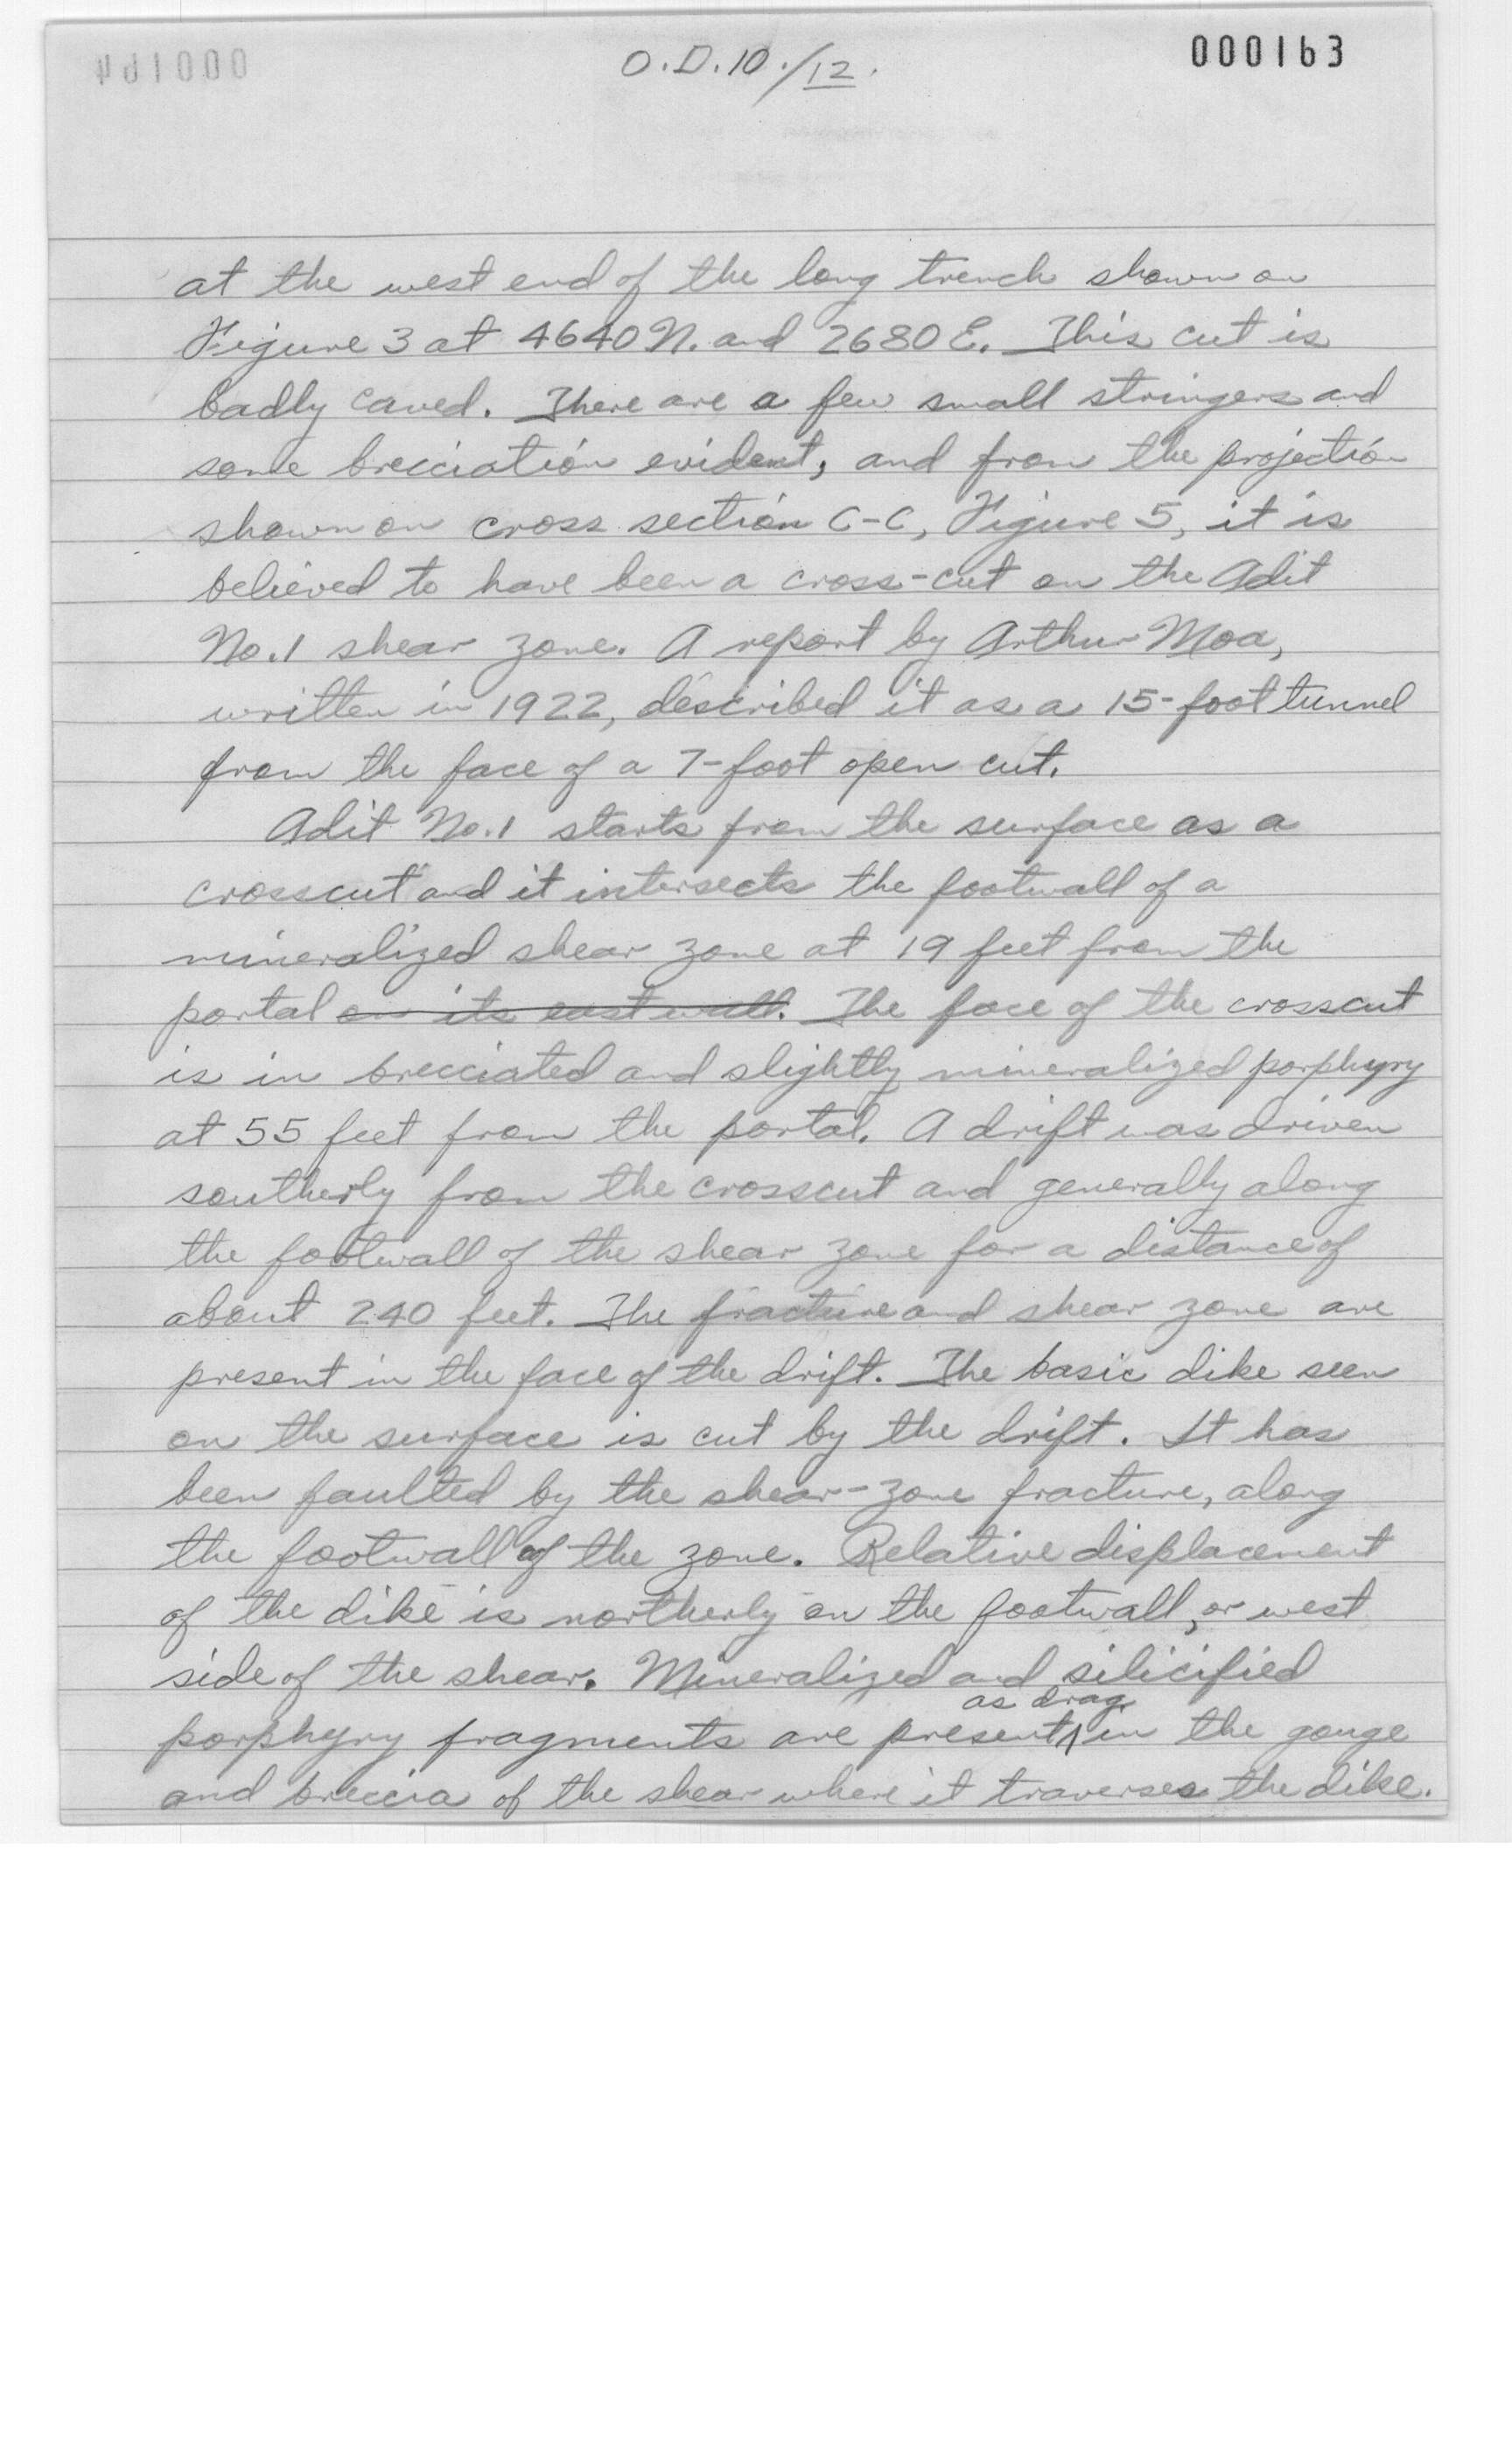 O.D.10./12.
000163
at the west end of the long trench shown on
Figure 3 at 4640 N. and 2680 E. This cut is
badly caved. There are a few small stringers and
some brecciation evident, and from the projection
shown on cross section C-C, Figure 5, it is
believed to have been a cross-cut on the Adit
No. 1 shear zone. A report by Arthur Moa,
written in 1922, described it as a 15-foot tunnel
from the face of a 7-foot open cut.
Adit No. 1 starts from the surface as a
crosscut and it intersects the footwall of a
mineralized shear zone at 19 feet from the
portal on its east wall. The face of the crosscut
is in brecciated and slightly mineralized porphyry
at 55 feet from the portal. A drift was driven
southerly from the crosscut and generally along
the footwall of the shear zone for a distance of
about 240 feet. The fracture and shear zone are
present in the face of the drift. The basic dike seen
on the surface is cut by the drift. It has
been faulted by the shear-zone fracture, along
the footwall of the zone. Relative displacement
of the dike is northerly on the footwall, or west
side of the shear. Mineralized and silicified
as drag
porphyry fragments are present in the gouge
and breccia of the shear where it traverses the dike.